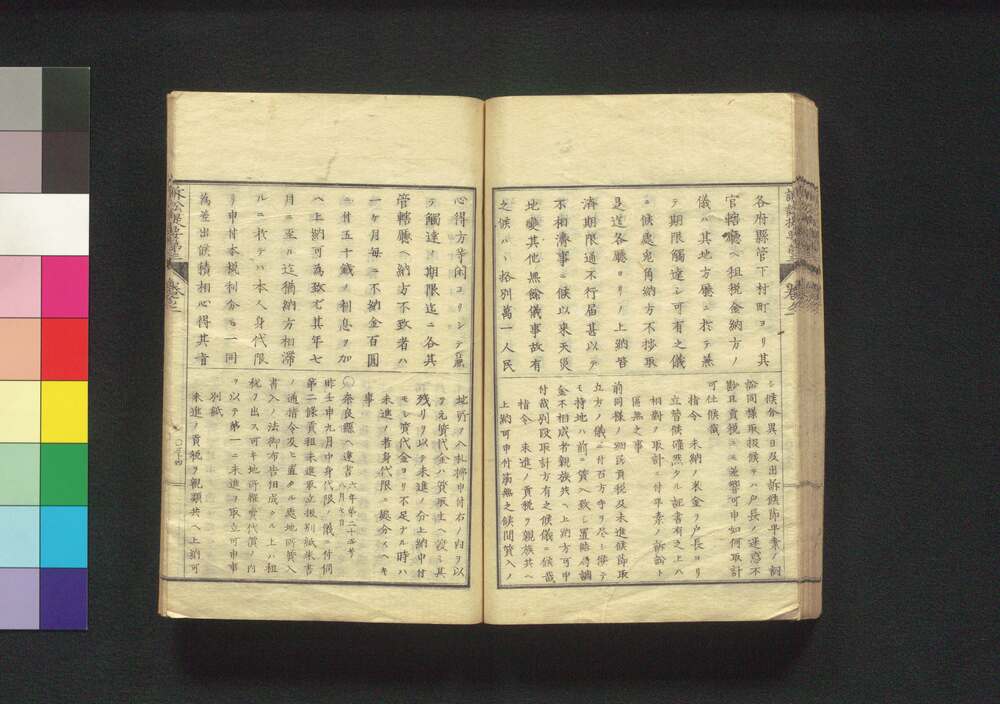 各府縣管下村町ヨリ其
官轄廳ヘ租税金納方ノ
儀ハ其地方廳ニ於テ無
テ期限觸達シ可有之儀
ニ候處兎角納方不捗取
是迄各廳ヨリノ上納皆
濟期限通不行届甚以テ
不相濟事ニ候以来天災
地變其他無餘儀事故有
之候ハヽ格別萬一人民
シ候分異日及出訴候節平素ノ詞
訟同様取扱候テハ戸長ノ迷惑不
尠且貢税ニモ差響可申如何取計
可仕候哉
指令 未納ノ米金ヲ戸長ヨリ
立替候確然タル証書有之上ハ
相對ノ取計ニ付平素ノ訴訟ト
區無之事
前同様ノ細民貢税及未進候節取
立方ノ儀ニ付百方手ヲ尽シ候テ
モ持地ハ前ニ質ヘ致シ置賠償調
金不相成者親族共ヘ上納方可申
付哉別段取計方有之候儀ニ候哉
指令 未進ノ貢税ヲ親族共ヘ
上納可申付筋無之候間質入ノ
心得方等閑ヨリシテ
テ觸達ノ期限迄ニ各其
管轄廳ヘ納方不致者ハ
一ケ月毎ニ不納金百圓
ニ付五十錢ノ利息ヲ加
ヘ上納可為致尤其年七
月ニ至ル迄猶納方相滞
ルニ於テハ本人身代限
リ申付本税利分トモ一同
為差出候積相心得其旨
地所ヲ入札拂申付右ノ内ヲ以
テ元質代金ハ質取主ヘ渡シ其
残リヲ以テ未進ノ分上納申付
モシ質代金ヨリ不足ナル時ハ
未進ノ者身代限ニ處分スヘキ
事
〇奈良縣ヘ達書 六年第二十五号
八月七日
昨壬申九月中身代限ノ儀ニ付伺
第二條貢租未進取立振別紙朱書
ノ通指令及ヒ置タル處地所質入
書入ノ法御布告相成タル上ハ租
税ヲ出スヘキ地所糶賣代價ノ内
ヲ以テ第一ニ未進ヲ取立可申事
別紙
未進ノ貢税ヲ親類共ヘ上納可